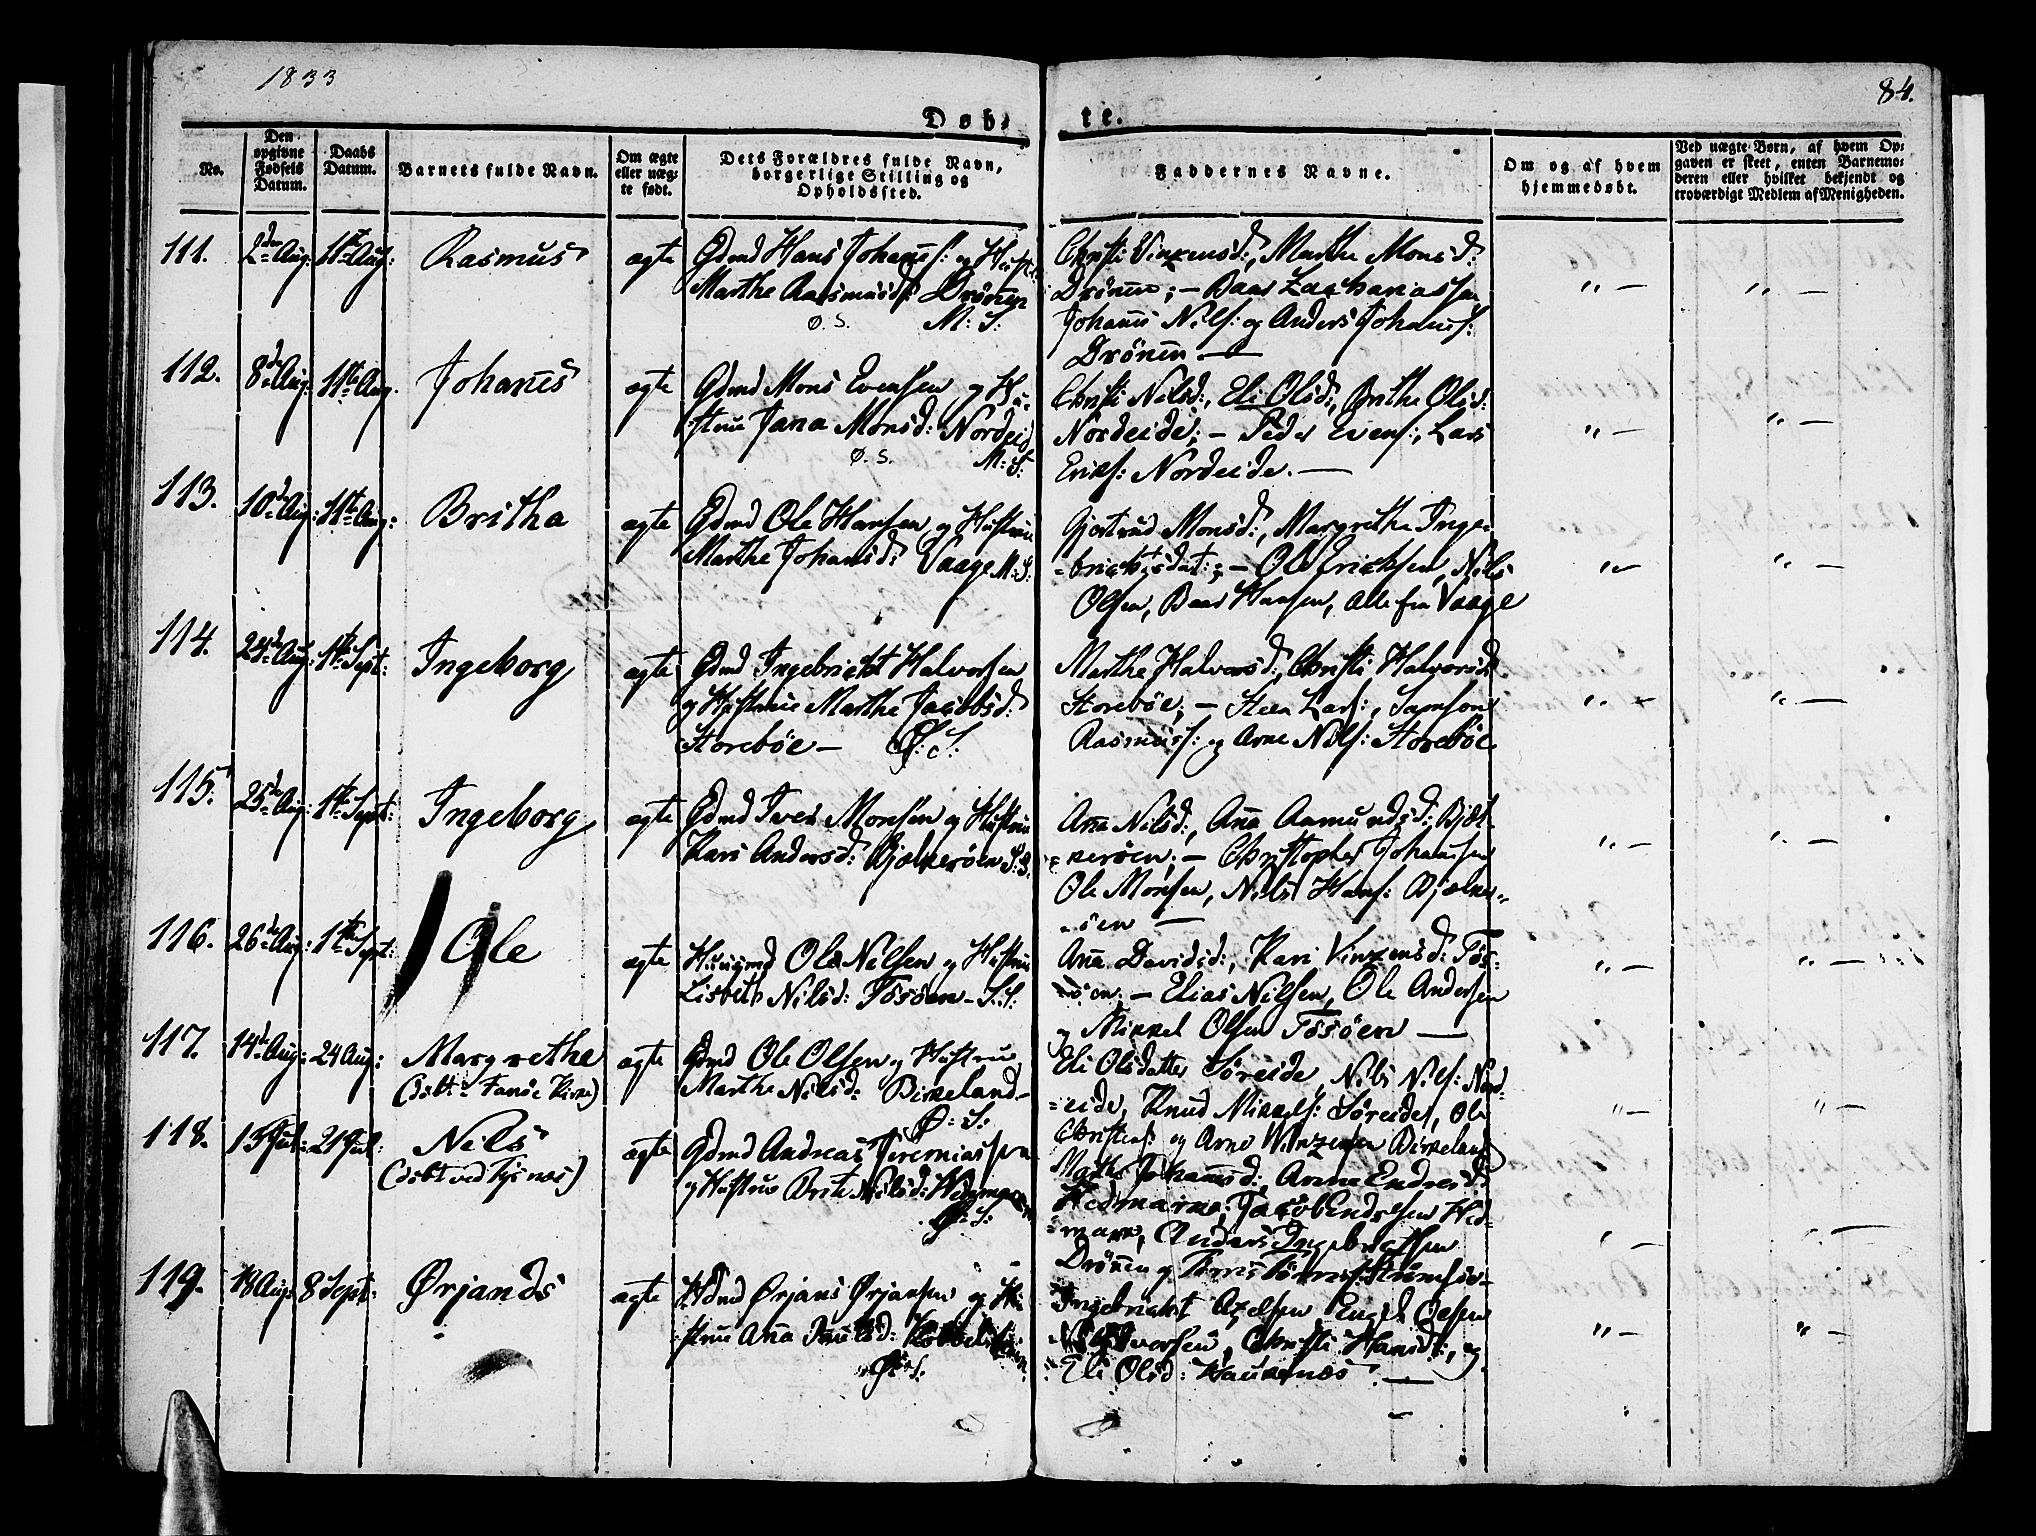 1833
84.
Døb-
te.
No.
Den opgivne Fødsels Datum.
Daabs Datum.
Barnets fulde Navn.
Om ægte eller uægte født.
Dets Forældres fulde Navn, borgerlige Stilling og Opholdssted.
Faddernes Navne.
Om og af hvem hjemmedøbt.
Ved uægte Børn, af hvem Opgaven er skeet, enten Barnemoderen eller hvilket bekjendt og troværdigt Medlem af Menigheden.
111. 2den Aug: 11te Aug: Rasmus ægte Gdmd Hans Johans: og Hustr:
Marthe Rasmusd: Drönen
Ø. S. M: S:
Christi Vinzensd:, Marthe Monsd:
Drönen; - Baar Zachariassen
Johans Nils: og Anders Johans:
Drönen —
112. 8de Aug: 11te Aug. Johanes ægte Gdmd Mons Evensen og Hu-
strue Jana Monsd: Nordeid
Ø. S. M: S:
Christi Nilsd:, Eli Olsd:, Brithe Olsd:
Nordeide; - Peder Evens:, Lars
Eriks: Nordeide. —
113. 10de Aug: 11te Aug: Britha ægte Gdmd Ole Hansen og Hustrue
Marthe Johansd: Vaage M: S:
Gjertrud Monsd:, Margrethe Inge-
-brichtsdat:; - Ole Erichsen, Nils
Olsen, Baar Hansen, alle fra Vaage
114. 24de Aug: 1te Sept: Ingeborg ægte Gdmd Ingebricht Halvorsen
og Hustrue Marthe Jacobsd:
Storebøe - Ø: S:
Marthe Halvorsd:, Christi Halvorsd:
Storebøe; - Sten Lars:, Samson
Rasmuss: og Arne Nils: Storebøe
115. 25de Aug: 1te Sept: Ingeborg ægte Gdmd Iver Monsen og Hustrue
Kari Andersd: Bjelkerøen S: S.
Ana Nilsd:, Ana Aamundsd: Bjæl-
kerøen; - Christopher Johansen
Ole Monsen, Nils Hans: Bjælker-
-öen —
116. 26de Aug: 1te Sept: Ole ægte Huusmd Ole Nilsen og Hustrue
Lisbeth Nilsd: Tösöen - S. S:
Ana Davidsd:, Kari Vinzensd: Tös-
öen; - Elias Nilsen, Ole Andersen
og Mikkel Olsen Tösöen —
117. 14de Aug: 24 Aug: Margrethe ægte Gdmd Ole Olsen og Hustrue
(døbt i Fanøe Kirke) Marthe Nilsd: Birkeland -
Ø: S:
Eli Olsdatter Søreide, Nils Nils: Nord-
-eide, Knud Mikkels: Søreide, Ole
Christens: og Arne Vinzensen Birkeland
118. 15 Jul: 21 Jul: Nils ægte Gdmd Andreas Jeremiassen
(døbt ved Tysnæs) og Hustrue Brite Nilsd:
Ø: S:
Marthe Johansd:, Anna Endresd:
Hedmarke, Jacob Endresen Hed-
mark, Anders Ingebrethsen
Drönen og
119. 18 Aug: 8 Sept: Ørjands ægte Gdmd Ørjans Ørjansen og Hu-
strue Ana Poulsd:
Ø: S:
Ingebricht Axelsen Engel Olsen
Christi Hansdt:, og
Eli Olsd: Haukenæs. —